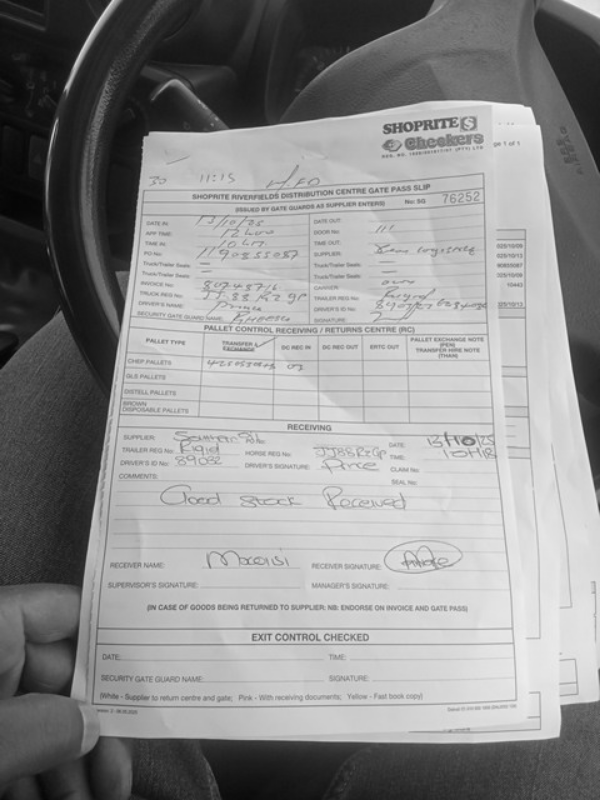 SHOPRITE S
Checkers
ge 1 of 1
30 11:15
SHOPRITE RIVERFIELDS DISTRIBUTION CENTRE GATE PASS SLIP
(ISSUED BY GATE GUARDS AS SUPPLIER ENTERS) No: SG 76252
DATE IN: 13/10/25 DATE OUT:
APP TIME: 12h00 DOOR No: 111
TIME IN: TIME OUT:
PO No: 1190855087 SUPPLIER: Logistics
Truck/Trailer Seals: — Truck/Trailer Seals: —
Truck/Trailer Seals: — Truck/Trailer Seals: —
INVOICE No: CARRIER: own
TRUCK REG No: JJ 88 RZ GP TRAILER REG No: Rigid
DRIVER'S NAME: Prince DRIVER'S ID No:
SECURITY GATE GUARD NAME: SIGNATURE:
PALLET CONTROL RECEIVING / RETURNS CENTRE (RC)
PALLET TYPE TRANSFER / EXCHANGE DC REC IN DC REC OUT ERTC OUT PALLET EXCHANGE NOTE (PEN) TRANSFER HIRE NOTE (THAN)
CHEP PALLETS 03
GLS PALLETS
DISTELL PALLETS
BROWN DISPOSABLE PALLETS
RECEIVING
SUPPLIER: DATE: 13/10/25
TRAILER REG No: Rigid HORSE REG No: JJ88RZGP TIME: 10H18
DRIVER'S ID No: 89032 DRIVER'S SIGNATURE: Prince CLAIM No:
SEAL No:
COMMENTS:
Good stock Received
RECEIVER NAME: RECEIVER SIGNATURE:
SUPERVISOR'S SIGNATURE: MANAGER'S SIGNATURE:
(IN CASE OF GOODS BEING RETURNED TO SUPPLIER; NB: ENDORSE ON INVOICE AND GATE PASS)
EXIT CONTROL CHECKED
DATE: TIME:
SECURITY GATE GUARD NAME: SIGNATURE:
(White - Supplier to return centre and gate; Pink - With receiving documents; Yellow - Fast book copy)
025/10/09
025/10/13
90855087
025/10/09
10443
025/10/13